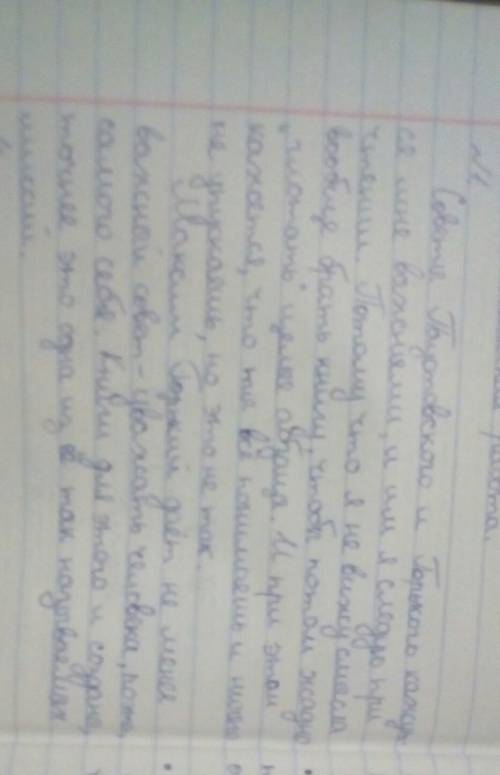 работа.
№1
Советы Паустовского и Горького кажут
ся мне важными, и им я следую при
чтении. Потому что я не вижу смысла
вообще брать книгу, чтобы потом жадно
"глотать" целые абзацы. И при этом
кажется, что ты всё понимаешь и ничего
не упускаешь, но это не так.
Максим Горький даёт не менее
важный совет - уважать человека,
самого себя. Книги для этого и созданы,
точнее это одна из их так называемых
миссий.